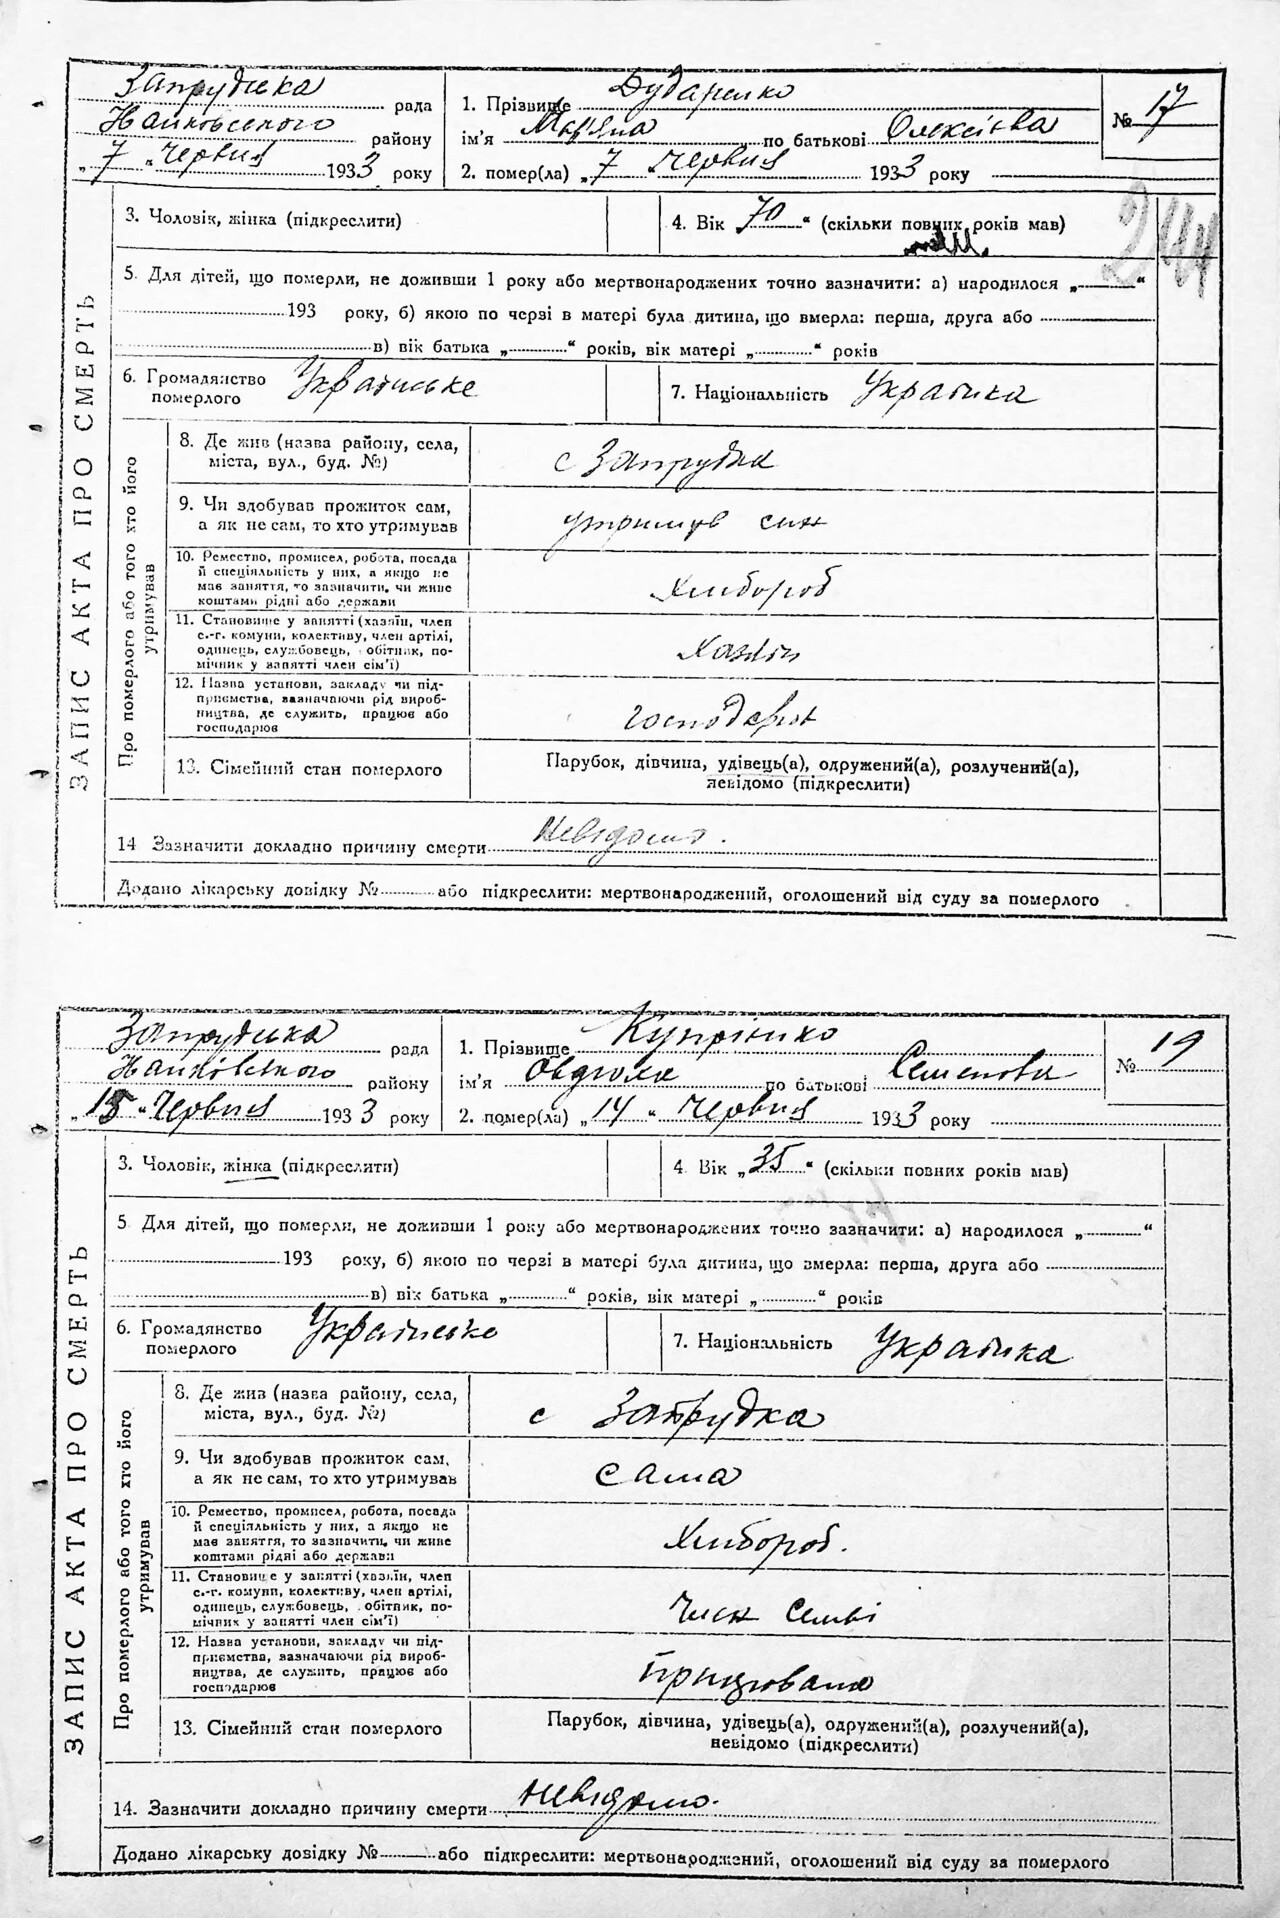 Запрудська рада
Наиківського району
„ 7 “ Червня 1933 року
1. Прізвище Дударенко
ім'я Мар'яна по батькові Олексіївна
2. помер(ла) „ 7 Червня 1933 року
№ 17
244
ЗАПИС АКТА ПРО СМЕРТЬ
3. Чоловік, жінка (підкреслити)
4. Вік 70 “ (скільки повних років мав)
5. Для дітей, що померли, не доживши 1 року або мертвонароджених точно зазначити: а) народилося „ “
193 року, б) якою по черзі в матері була дитина, що вмерла: перша, друга або
в) вік батька „ “ років, вік матері „ “ років
6. Громадянство
померлого
Українське
7. Національність Українка
Про померлого або того хто його
утримував
8. Де жив (назва району, села,
міста, вул., буд. №)
с Запрудка
9. Чи здобував прожиток сам,
а як не сам, то хто утримував
утримув син
10. Ремество, промисел, робота, посада
й спеціяльність у них, а якщо не
мав заняття, то зазначити, чи живе
коштами рідні або держави
Хлібороб
11. Становище у занятті (хазяїн, член
с.-г. комуни, колективу, член артілі,
одинець, службовець, обітник, по-
мічник у занятті член сім'ї)
Хазяін
12. Назва установи, закладу чи під-
приємства, зазначаючи рід вироб-
ництва, де служить, працює або
господарює
13. Сімейний стан померлого
Парубок, дівчина, удівець(а), одружений(а), розлучений(а),
невідомо (підкреслити)
14 Зазначити докладно причину смерти Невідомо.
Додано лікарську довідку № або підкреслити: мертвонароджений, оголошений від суду за померлого
Запрудська рада
Наиківського району
„ 15 “ Червня 1933 року
1. Прізвище Купрінко
ім'я по батькові Семенова
2. помер(ла) „ 14 “ Червня 1933 року
№ 19
ЗАПИС АКТА ПРО СМЕРТЬ
3. Чоловік, жінка (підкреслити)
4. Вік „ 35 “ (скільки повних років мав)
5. Для дітей, що померли, не доживши 1 року або мертвонароджених точно зазначити: а) народилося „ “
193 року, б) якою по черзі в матері була дитина, що вмерла: перша, друга або
в) вік батька „ “ років, вік матері „ “ років
6. Громадянство
померлого
Українсько
7. Національність Українка
Про померлого або того хто його
утримував
8. Де жив (назва району, села,
міста, вул., буд. №)
с Запрудка
9. Чи здобував прожиток сам,
а як не сам, то хто утримував
сама
10. Ремество, промисел, робота, посада
й спеціяльність у них, а якщо не
мав заняття, то зазначити, чи живе
коштами рідні або держави
Хлібороб.
11. Становище у занятті (хазяїн, член
с.-г. комуни, колективу, член артілі,
одинець, службовець, обітник, по-
мічник у занятті член сім'ї)
Член Семьі
12. Назва установи, закладу чи під-
приємства, зазначаючи рід вироб-
ництва, де служить, працює або
господарює
Працювала
13. Сімейний стан померлого
Парубок, дівчина, удівець(а), одружений(а), розлучений(а),
невідомо (підкреслити)
14. Зазначити докладно причину смерти невідомо.
Додано лікарську довідку № або підкреслити: мертвонароджений, оголошений від суду за померлого